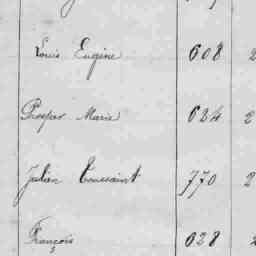 Louis Eugène 608 2
Prosper Marie 624 2
Julien Toussaint 770 2
François 628 2